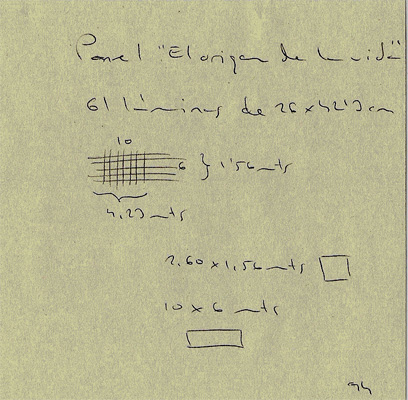 Panel "El origen de la vida"
61 láminas de 26 x 42'3 cm
10
6 } 1'56 mts
4,23 mts
2,60 x 1,56 mts
10 x 6 mts